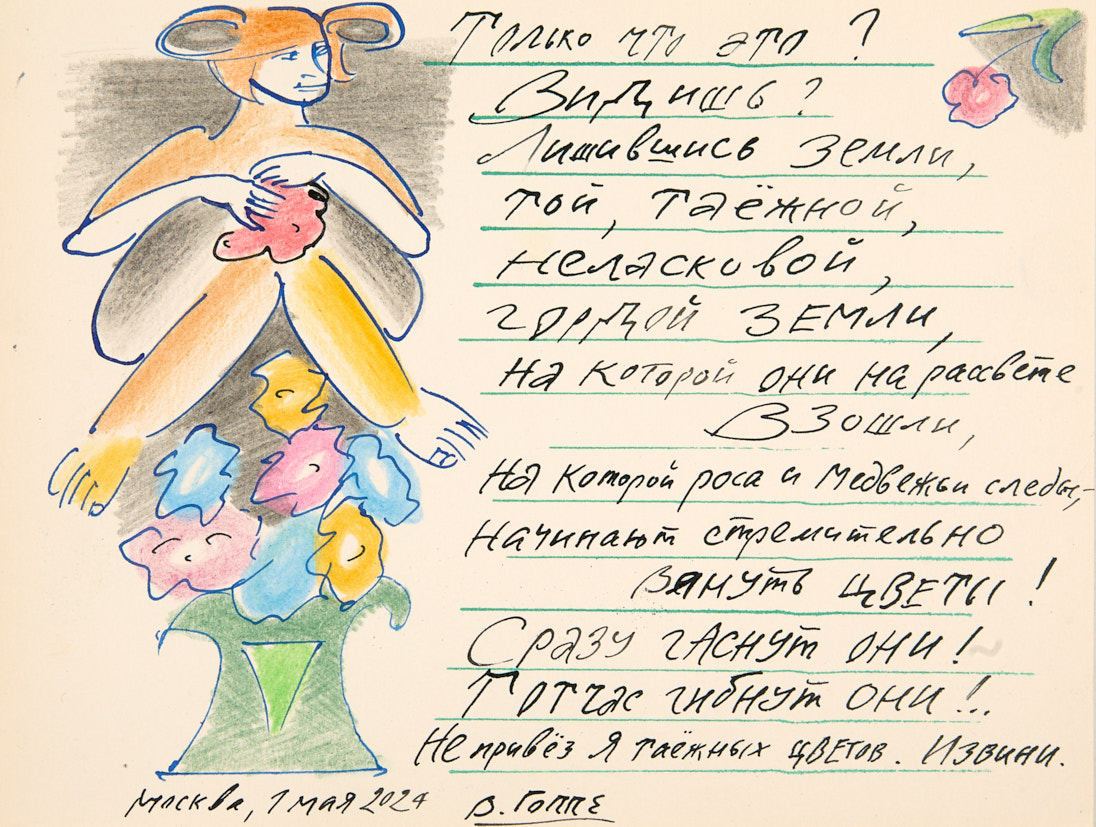 Только что это ?
Видишь ?
Лишившись земли,
той, таёжной,
неласковой,
гордой земли,
на которой они на рассвете
взошли,
на которой роса и медвежьи следы,-
начинают стремительно
вянуть цветы !
Сразу гаснут они !
Тотчас гибнут они !..
Не привёз я таёжных цветов. Извини.
Москва, 1 мая 2024 В. Гоппе